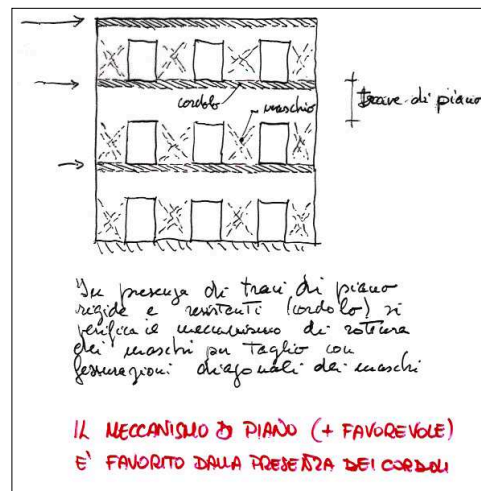 cordolo
maschio
trave di piano
In presenza di travi di piano
rigide e resistenti (cordolo) si
verifica il meccanismo di rottura
dei maschi per taglio con
fessurazioni diagonali dei maschi
IL MECCANISMO DI PIANO (+ FAVOREVOLE)
E' FAVORITO DALLA PRESENZA DEI CORDOLI